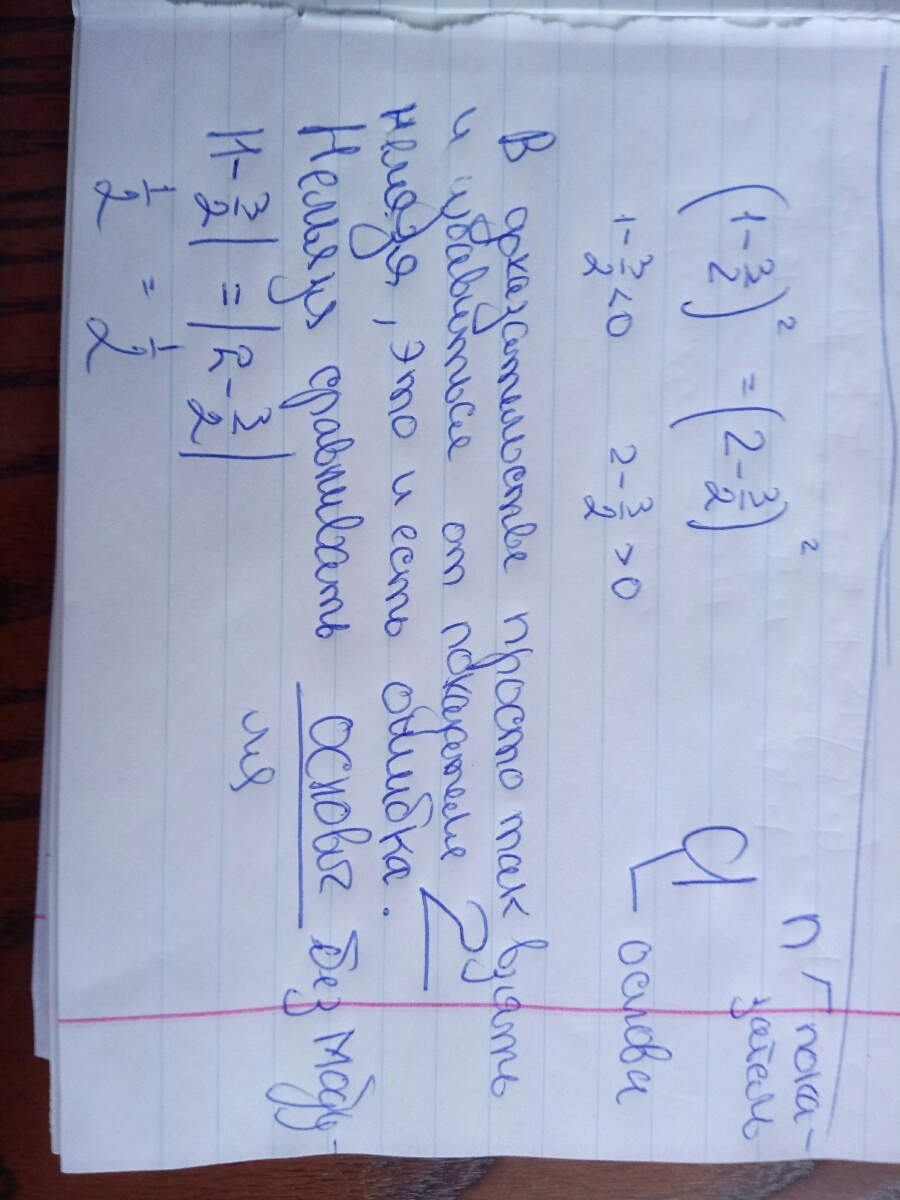 (1-3/2)² = (2-3/2)²
1-3/2<0 2-3/2>0
aⁿ
пока-
затель
основа
В доказательстве просто так взять
и избавиться от показателя 2
нельзя, это и есть ошибка.
Нельзя сравнивать основы без моду-
ля
|1-3/2| = |2-3/2|
1/2 = 1/2